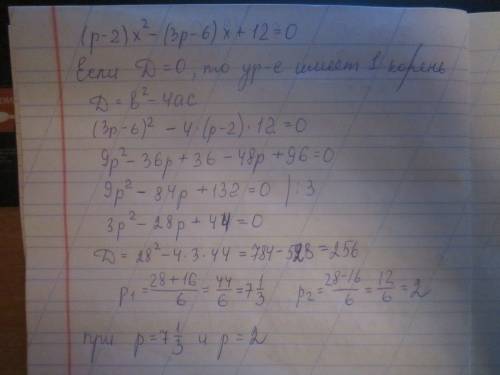 (p-2)x²-(3p-6)x+12=0
Если D=0, то ур-е имеет 1 корень
D=b²-4ac
(3p-6)²-4·(p-2)·12=0
9p²-36p+36-48p+96=0
9p²-84p+132=0 |:3
3p²-28p+44=0
D=28²-4·3·44=784-528=256
p₁=(28+16)/6=44/6=7 1/3 p₂=(28-16)/6=12/6=2
при p=7 1/3 и p=2